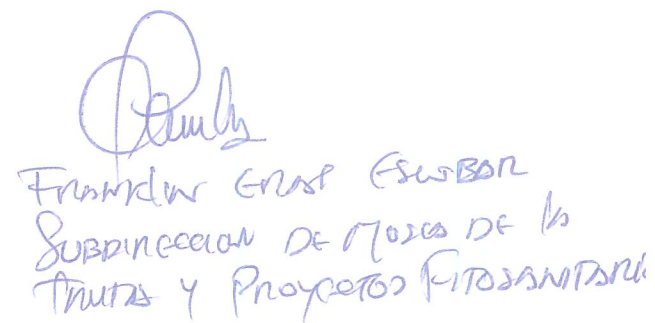 Franklin Eras Escobar
Subdireccion de Mosca de la
Fruta y Proyectos Fitosanitari